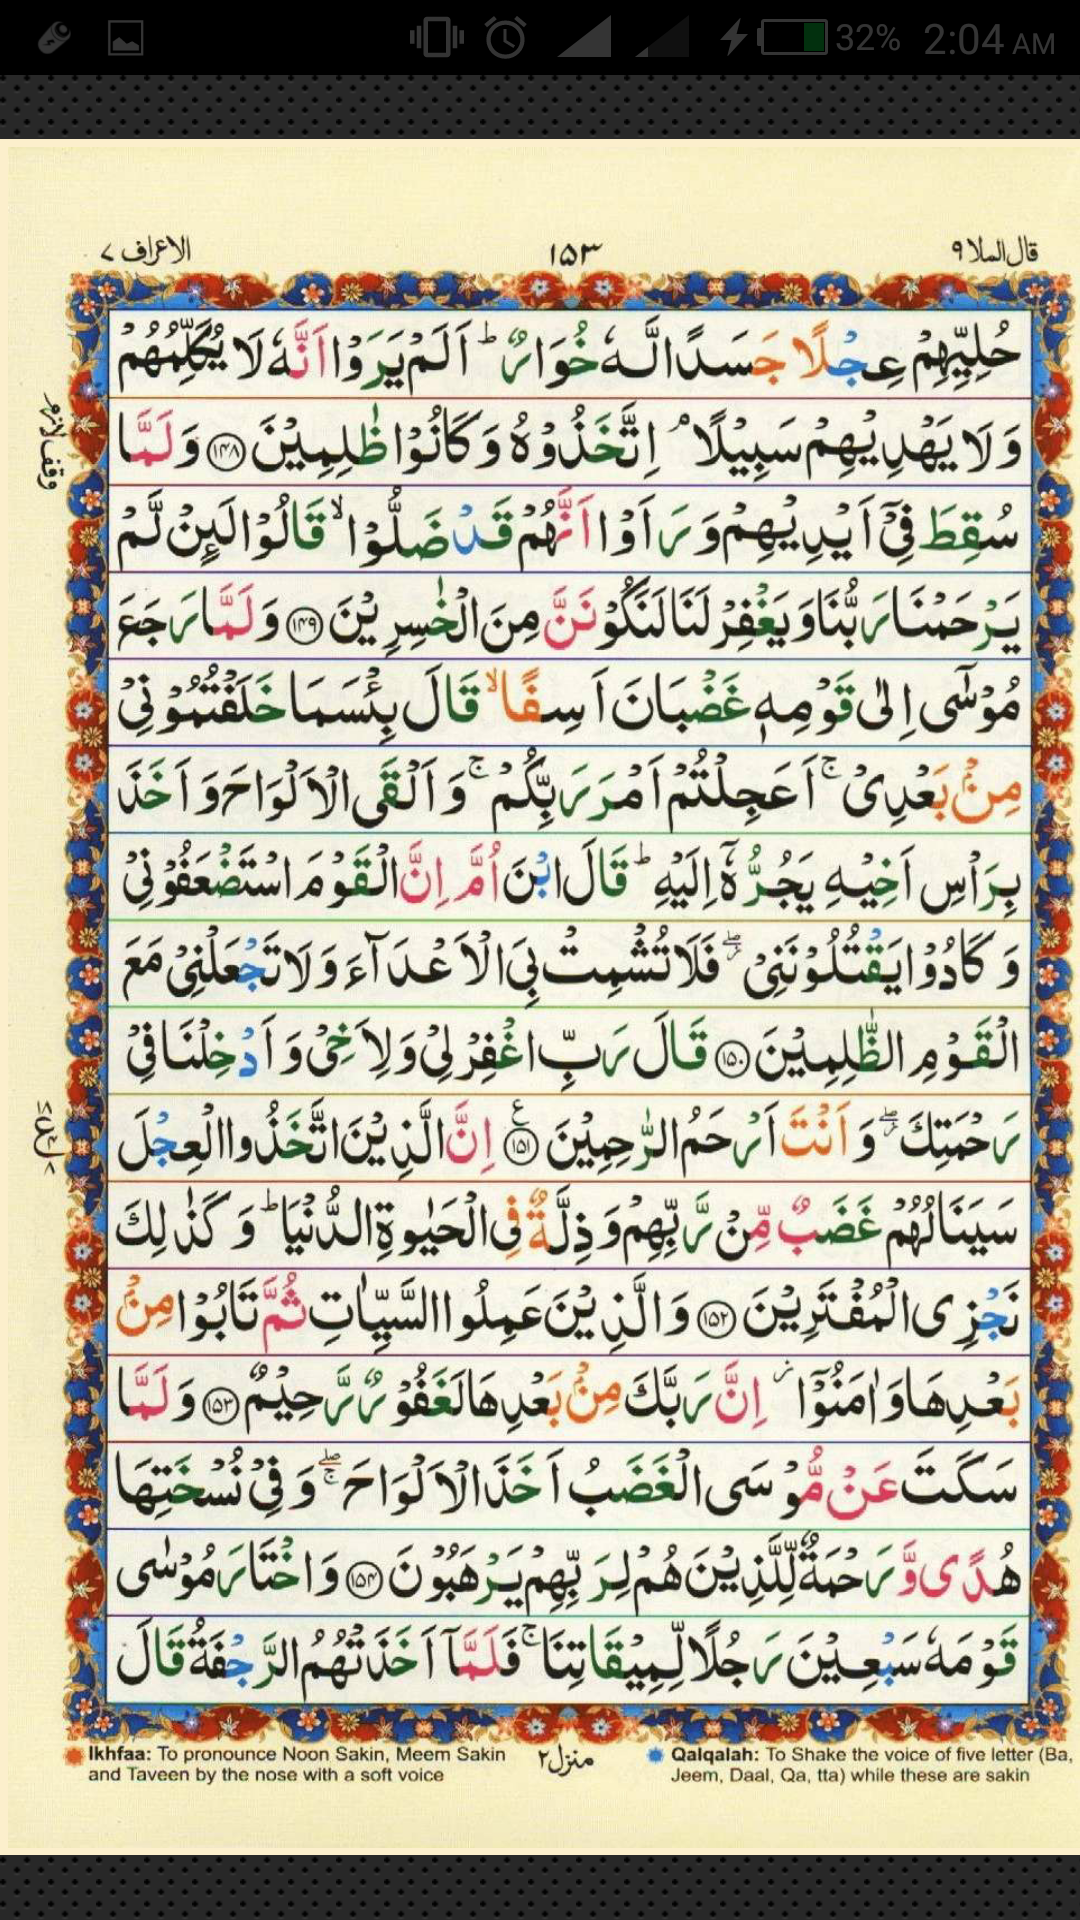 32% 2:04 AM
قال الملا ٩ ١٥٣ الاعراف ٧
حُلِيِّهِمْ عِجْلًا جَسَدًا لَّهٗ خُوَارٌ ؕ اَلَمْ يَرَوْا اَنَّهٗ لَا يُكَلِّمُهُمْ
وَلَا يَهْدِيْهِمْ سَبِيْلًا ۘ اِتَّخَذُوْهُ وَكَانُوْا ظٰلِمِيْنَ ﴿۱۴۸﴾ وَلَمَّا
وقف لازم
سُقِطَ فِيْٓ اَيْدِيْهِمْ وَرَاَوْا اَنَّهُمْ قَدْ ضَلُّوْا ۙ قَالُوْا لَىِٕنْ لَّمْ
يَرْحَمْنَا رَبُّنَا وَيَغْفِرْ لَنَا لَنَكُوْنَنَّ مِنَ الْخٰسِرِيْنَ ﴿۱۴۹﴾ وَلَمَّا رَجَعَ
مُوْسٰٓى اِلٰى قَوْمِهٖ غَضْبَانَ اَسِفًا ۙ قَالَ بِئْسَمَا خَلَفْتُمُوْنِيْ
مِنْۢ بَعْدِيْ ۚ اَعَجِلْتُمْ اَمْرَ رَبِّكُمْ ۚ وَاَلْقَى الْاَلْوَاحَ وَاَخَذَ
بِرَاْسِ اَخِيْهِ يَجُرُّهٗٓ اِلَيْهِ ؕ قَالَ ابْنَ اُمَّ اِنَّ الْقَوْمَ اسْتَضْعَفُوْنِيْ
وَكَادُوْا يَقْتُلُوْنَنِيْ ۖ فَلَا تُشْمِتْ بِيَ الْاَعْدَآءَ وَلَا تَجْعَلْنِيْ مَعَ
الْقَوْمِ الظّٰلِمِيْنَ ﴿۱۵۰﴾ قَالَ رَبِّ اغْفِرْ لِيْ وَلِاَخِيْ وَاَدْخِلْنَا فِيْ
رَحْمَتِكَ ۖ وَاَنْتَ اَرْحَمُ الرّٰحِمِيْنَ ﴿۱۵۱﴾ اِنَّ الَّذِيْنَ اتَّخَذُوا الْعِجْلَ
سَيَنَالُهُمْ غَضَبٌ مِّنْ رَّبِّهِمْ وَذِلَّةٌ فِي الْحَيٰوةِ الدُّنْيَا ؕ وَكَذٰلِكَ
نَجْزِي الْمُفْتَرِيْنَ ﴿۱۵۲﴾ وَالَّذِيْنَ عَمِلُوا السَّيِّاٰتِ ثُمَّ تَابُوْا مِنْۢ
بَعْدِهَا وَاٰمَنُوْٓا ۫ اِنَّ رَبَّكَ مِنْۢ بَعْدِهَا لَغَفُوْرٌ رَّحِيْمٌ ﴿۱۵۳﴾ وَلَمَّا
سَكَتَ عَنْ مُّوْسَى الْغَضَبُ اَخَذَ الْاَلْوَاحَ ۖۚ وَفِيْ نُسْخَتِهَا
هُدًى وَّرَحْمَةٌ لِّلَّذِيْنَ هُمْ لِرَبِّهِمْ يَرْهَبُوْنَ ﴿۱۵۴﴾ وَاخْتَارَ مُوْسٰى
قَوْمَهٗ سَبْعِيْنَ رَجُلًا لِّمِيْقَاتِنَا ۚ فَلَمَّآ اَخَذَتْهُمُ الرَّجْفَةُ قَالَ
Ikhfaa: To pronounce Noon Sakin, Meem Sakin
and Taveen by the nose with a soft voice
منزل ٢
Qalqalah: To Shake the voice of five letter (Ba,
Jeem, Daal, Qa, tta) while these are sakin